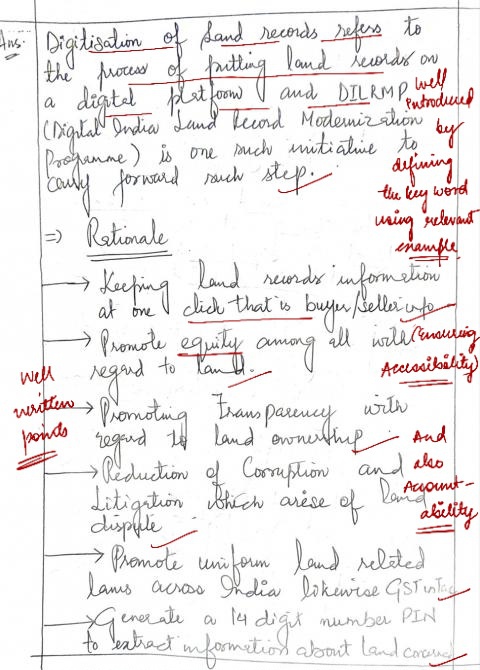 Ans.
Digitisation of Land records refers to
the process of putting land records on
a digital platform and DILRMP
(Digital India Land Record Modernization
Programme) is one such initiative to
carry forward such step.
Well
introduced
by
defining
the key word
using relevant
example
=> Rationale
→ Keeping land records information
at one click that is buyer/seller info
→ Promote equity among all with
regard to land.
(Ensuring
Accessibility)
Well
written
points
→ Promoting Transparency with
regard to land ownership
And
also
Account-
ability
→ Reduction of Corruption and
Litigation which arise of land
dispute
→ Promote uniform land related
laws across India likewise GST in Tax
→ Generate a 14 digit number PIN
to extract information about land concerned